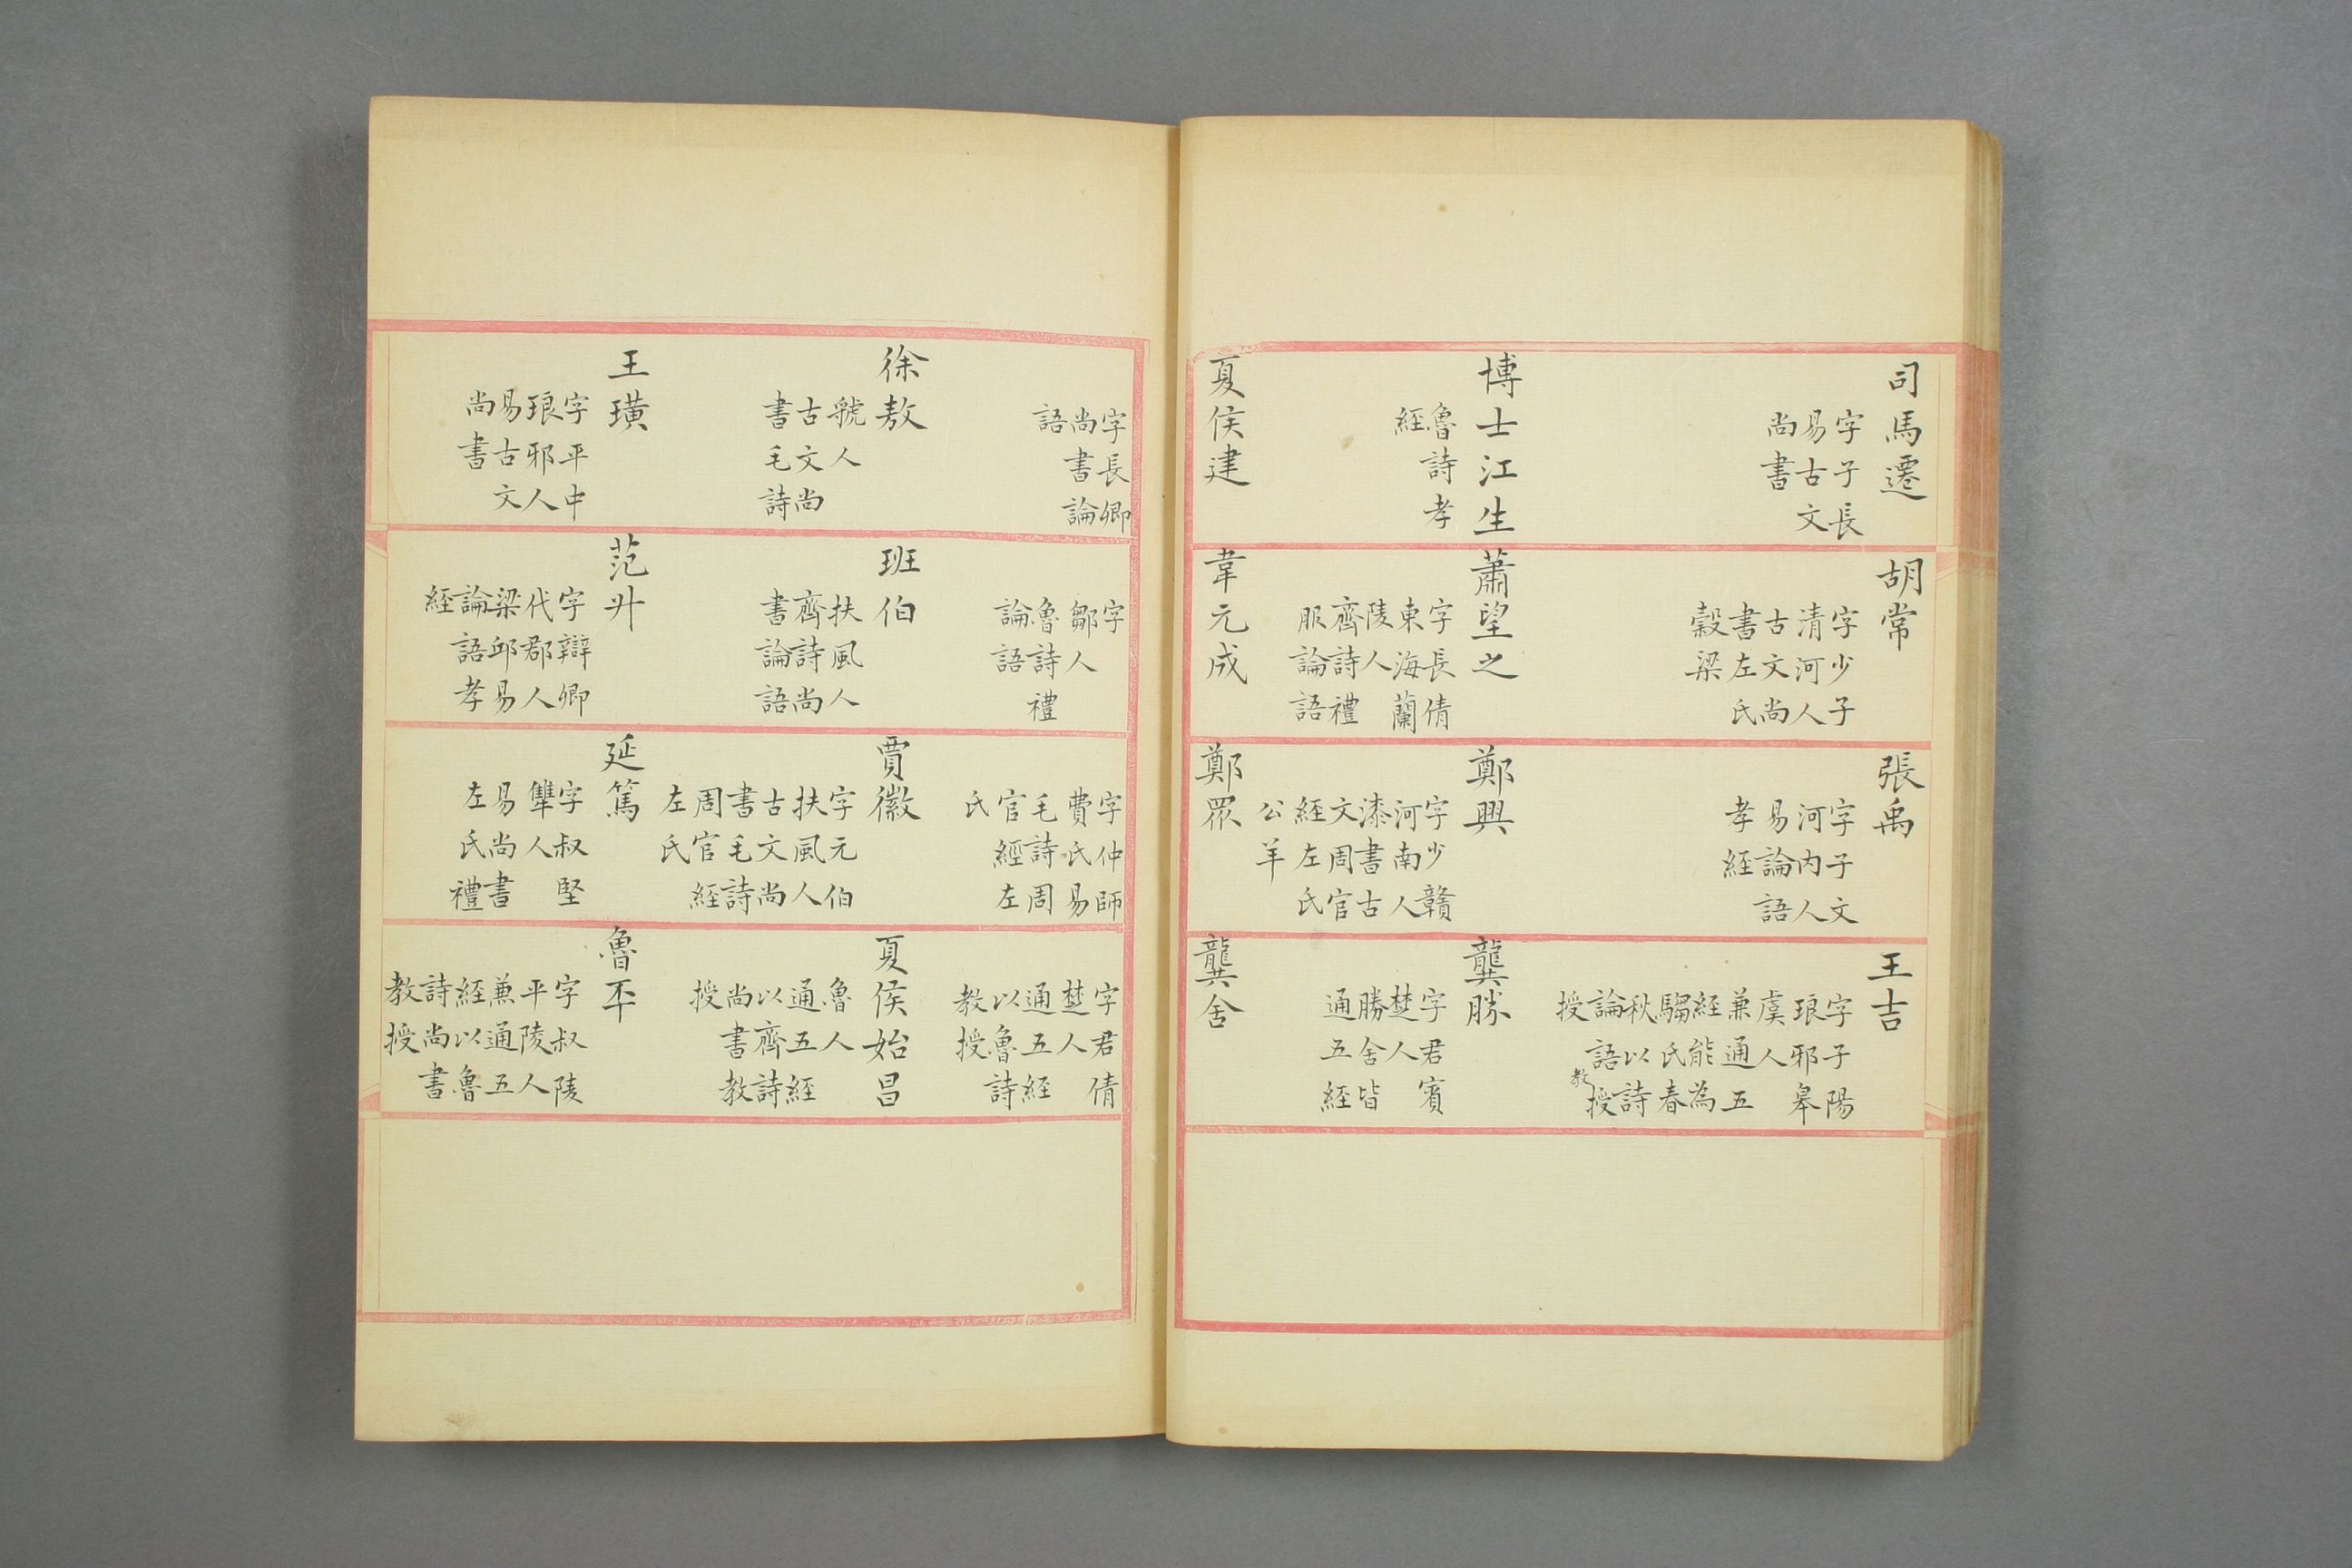 司馬遷
字子長
易古文
尚書
博士江生
魯詩孝
經
夏侯建
字長卿
尚書論
語
徐敖
虢人
古文尚
書毛詩
王璜
字平中
琅邪人
易古文
尚書
胡常
字少子
清河人
古文尚
書左氏
穀梁
蕭望之
字長倩
東海蘭
陵人
齊詩禮
服論語
韋元成
字
鄒人
魯詩禮
論語
班伯
扶風人
齊詩尚
書論語
范升
字辯卿
代郡人
梁邱易
論語孝
經
張禹
字子文
河內人
易論語
孝經
鄭興
字少贛
河南人
漆書古
文周官
經左氏
公羊
鄭眾
字仲師
費氏易
毛詩周
官經左
氏
賈徽
字元伯
扶風人
古文尚
書毛詩
周官經
左氏
延篤
字叔堅
犨人
易尚書
左氏禮
王吉
字子陽
琅邪皋
虞人
兼通五
經能為
騶氏春
秋以詩
論語教授
授
龔勝
字君賓
楚人
勝舍皆
通五經
龔舍
字君倩
楚人
通五經
以魯詩
教授
夏侯始昌
魯人
通五經
以齊詩
尚書教
授
魯丕
字叔陵
平陵人
兼通五
經以魯
詩尚書
教授